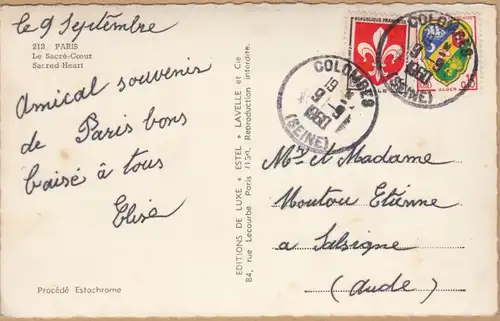 le 9 Septembre
212 PARIS
Le Sacré-Cœur
Sacred-Heart
Amical souvenir
de Paris bons
baisé à tous
Elise
Procédé Estachrome
EDITIONS DE LUXE « ESTEL » LAVELLE et Cie
84, rue Lecourbe. Paris (15e). Reproduction interdite.
REPUBLIQUE FRANÇAISE
LILLE
ALGER
0,05
COLOMBES
19 H
9 - 9
1960
(SEINE)
COLOMBES
9 - 9
1960
(SEINE)
Mr et Madame
Moutou Etienne
a Salsigne
(Aude)